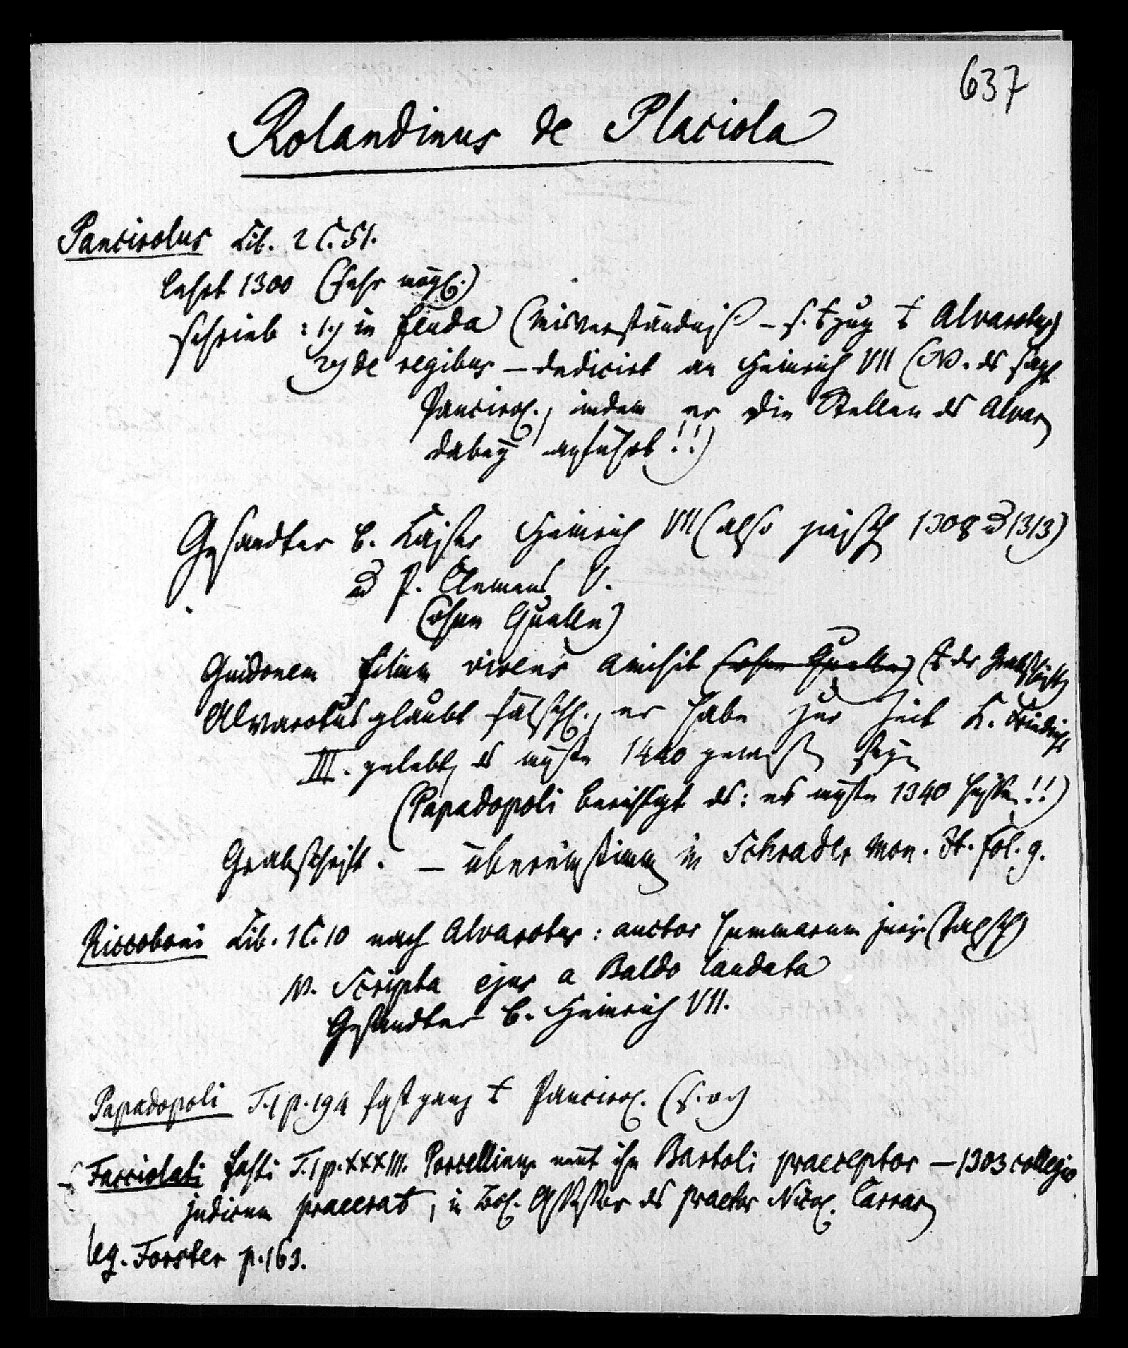 637
Rolandinus de Placiola
Pancirolus Lib. 2 C. 51.
lehrt 1300 (sehr mögl.)
schrieb : 1.) in feuda (Misverständniß – s. Alvarotus)
2.) de regibus – dedicirt an Heinrich VII (NB. ds sagt
Pancirol., indem er die Stellen ds Alvar.
dabey anführt!!)
Gesandter b. Kaiser Heinrich VII (also zwisch 1308 u 1313)
u P. Clemens V.
(ohne Quelle)
Guidonem filium vivens amisit (ohne Quelle) der Grabschrift
Alvarotus glaubt fälschl., er habe zur Zeit K. Friedrichs
III. gelebt, es müste 1440 gewesen seyn
(Papadopoli berichtigt ds: es müste 1340 heißen!!)
Grabschrift. – übereinstimm in Schrader Mon. It. fol. 9.
Riccoboni Lib. 1 C. 10 nach Alvarotus : auctor summarum juris (falsch)
N. Scripta ejus a Baldo laudata
Gesandter b. Heinrich VII.
Papadopoli T. 1 p. 194 fast ganz Pancirol. (s. o.)
Facciolati fasti T. 1 p. XXXIII. Porcellinus nent ihn Bartoli praeceptor – 1303 collegio
judicum praeerat, in Bol. Assessor ds Praetor Nicol. Carrar.
Vg. Forster p. 163.